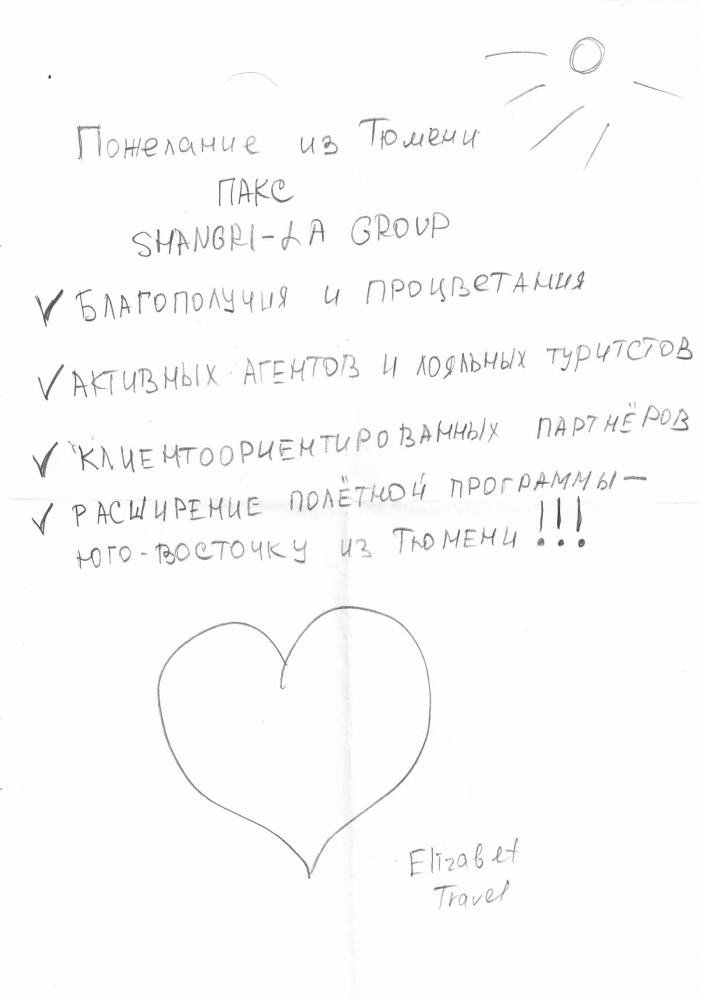 Пожелание из Тюмени
ПАКС
SHANGRI-LA GROUP
БЛАГОПОЛУЧИЯ И ПРОЦВЕТАНИЯ
АКТИВНЫХ АГЕНТОВ И ЛОЯЛЬНЫХ ТУРИТСТОВ
КЛИЕНТООРИЕНТИРОВАННЫХ ПАРТНЁРОВ
РАСШИРЕНИЕ ПОЛЁТНОЙ ПРОГРАММЫ—
ЮГО-ВОСТОЧКУ ИЗ ТЮМЕНИ!!!
Elizabet
Travel